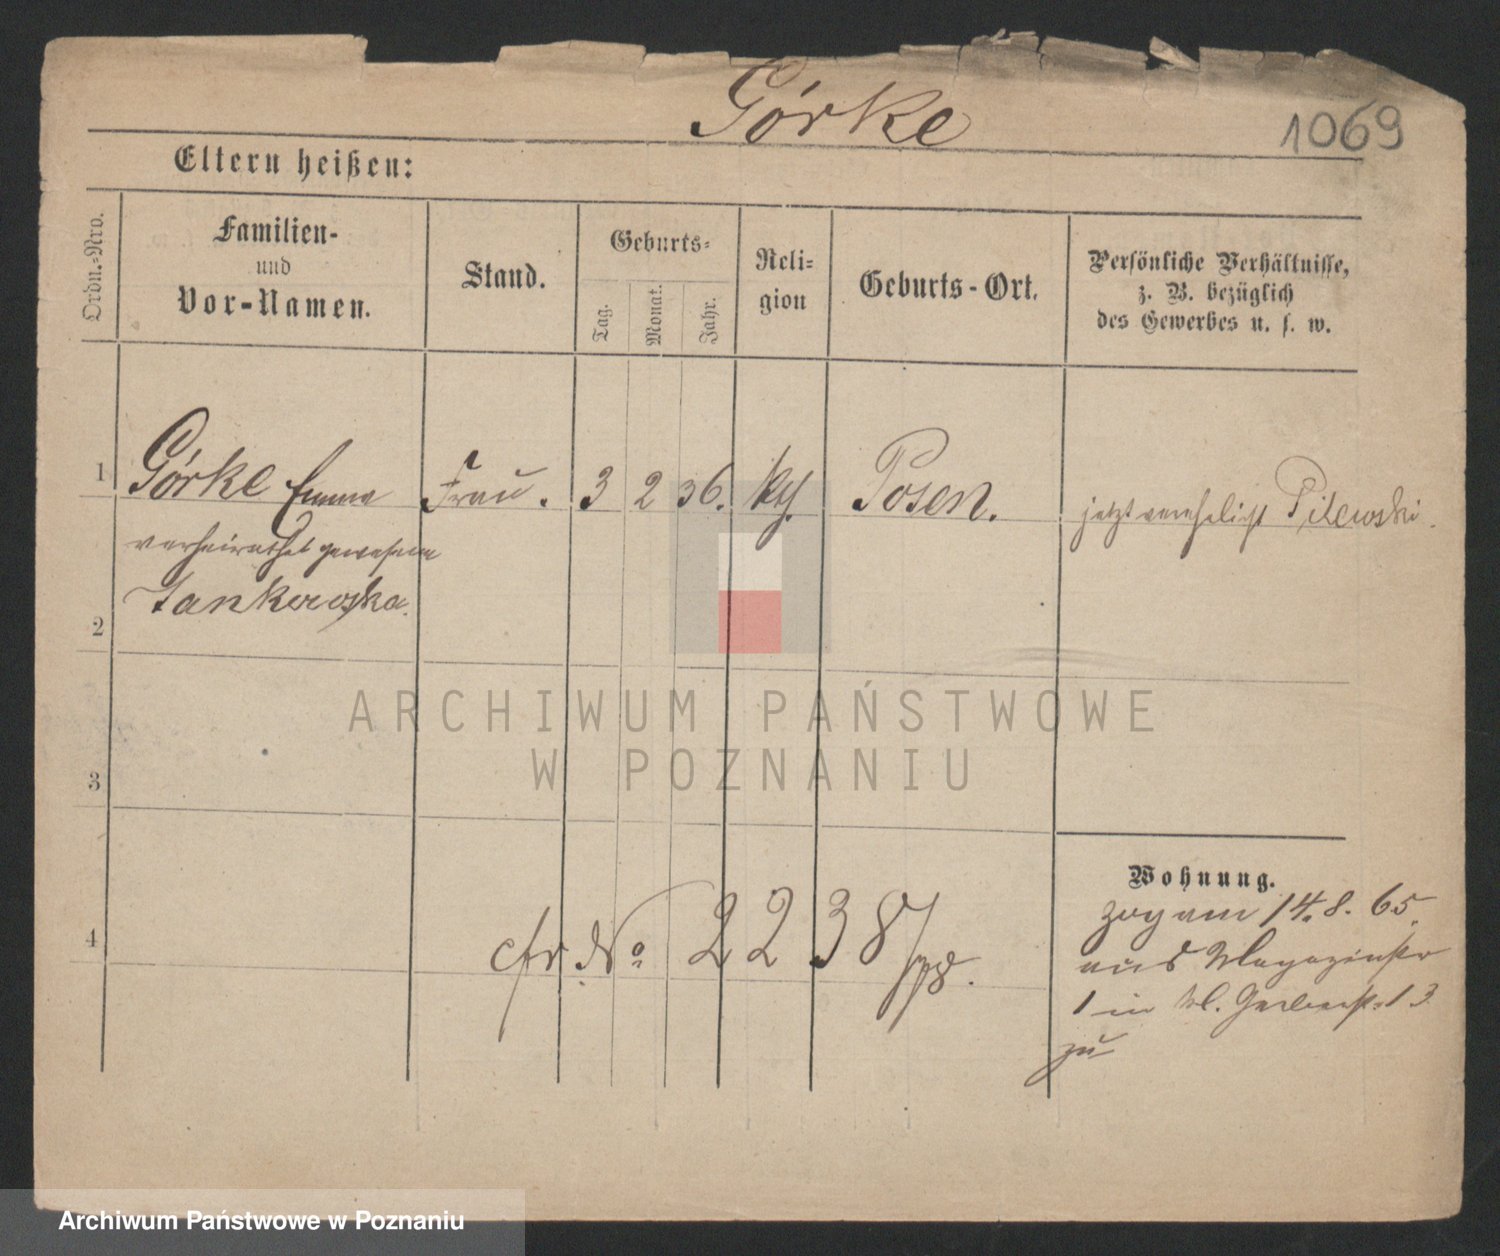 Görke
1069
Eltern heißen:
Ordn.-Nro.
Familien-
und
Vor-Namen.
Stand.
Geburts-
Tag.
Monat.
Jahr.
Reli-
gion
Geburts-Ort.
Persönliche Verhältnisse,
z. B. bezüglich
des Gewerbes u. s. w.
1 Görke Emma Frau. 3 2 36. kth. Posen. jetzt verehelicht Pilewski.
verheirathet gewesene
Jankowska.
2
3
4
cfr. No 2238/
Wohnung.
zog am 14.8.65.
aus Magazinstr
1 in kl. Gerberstr 13
zu
ARCHIWUM PAŃSTWOWE
W POZNANIU
Archiwum Państwowe w Poznaniu